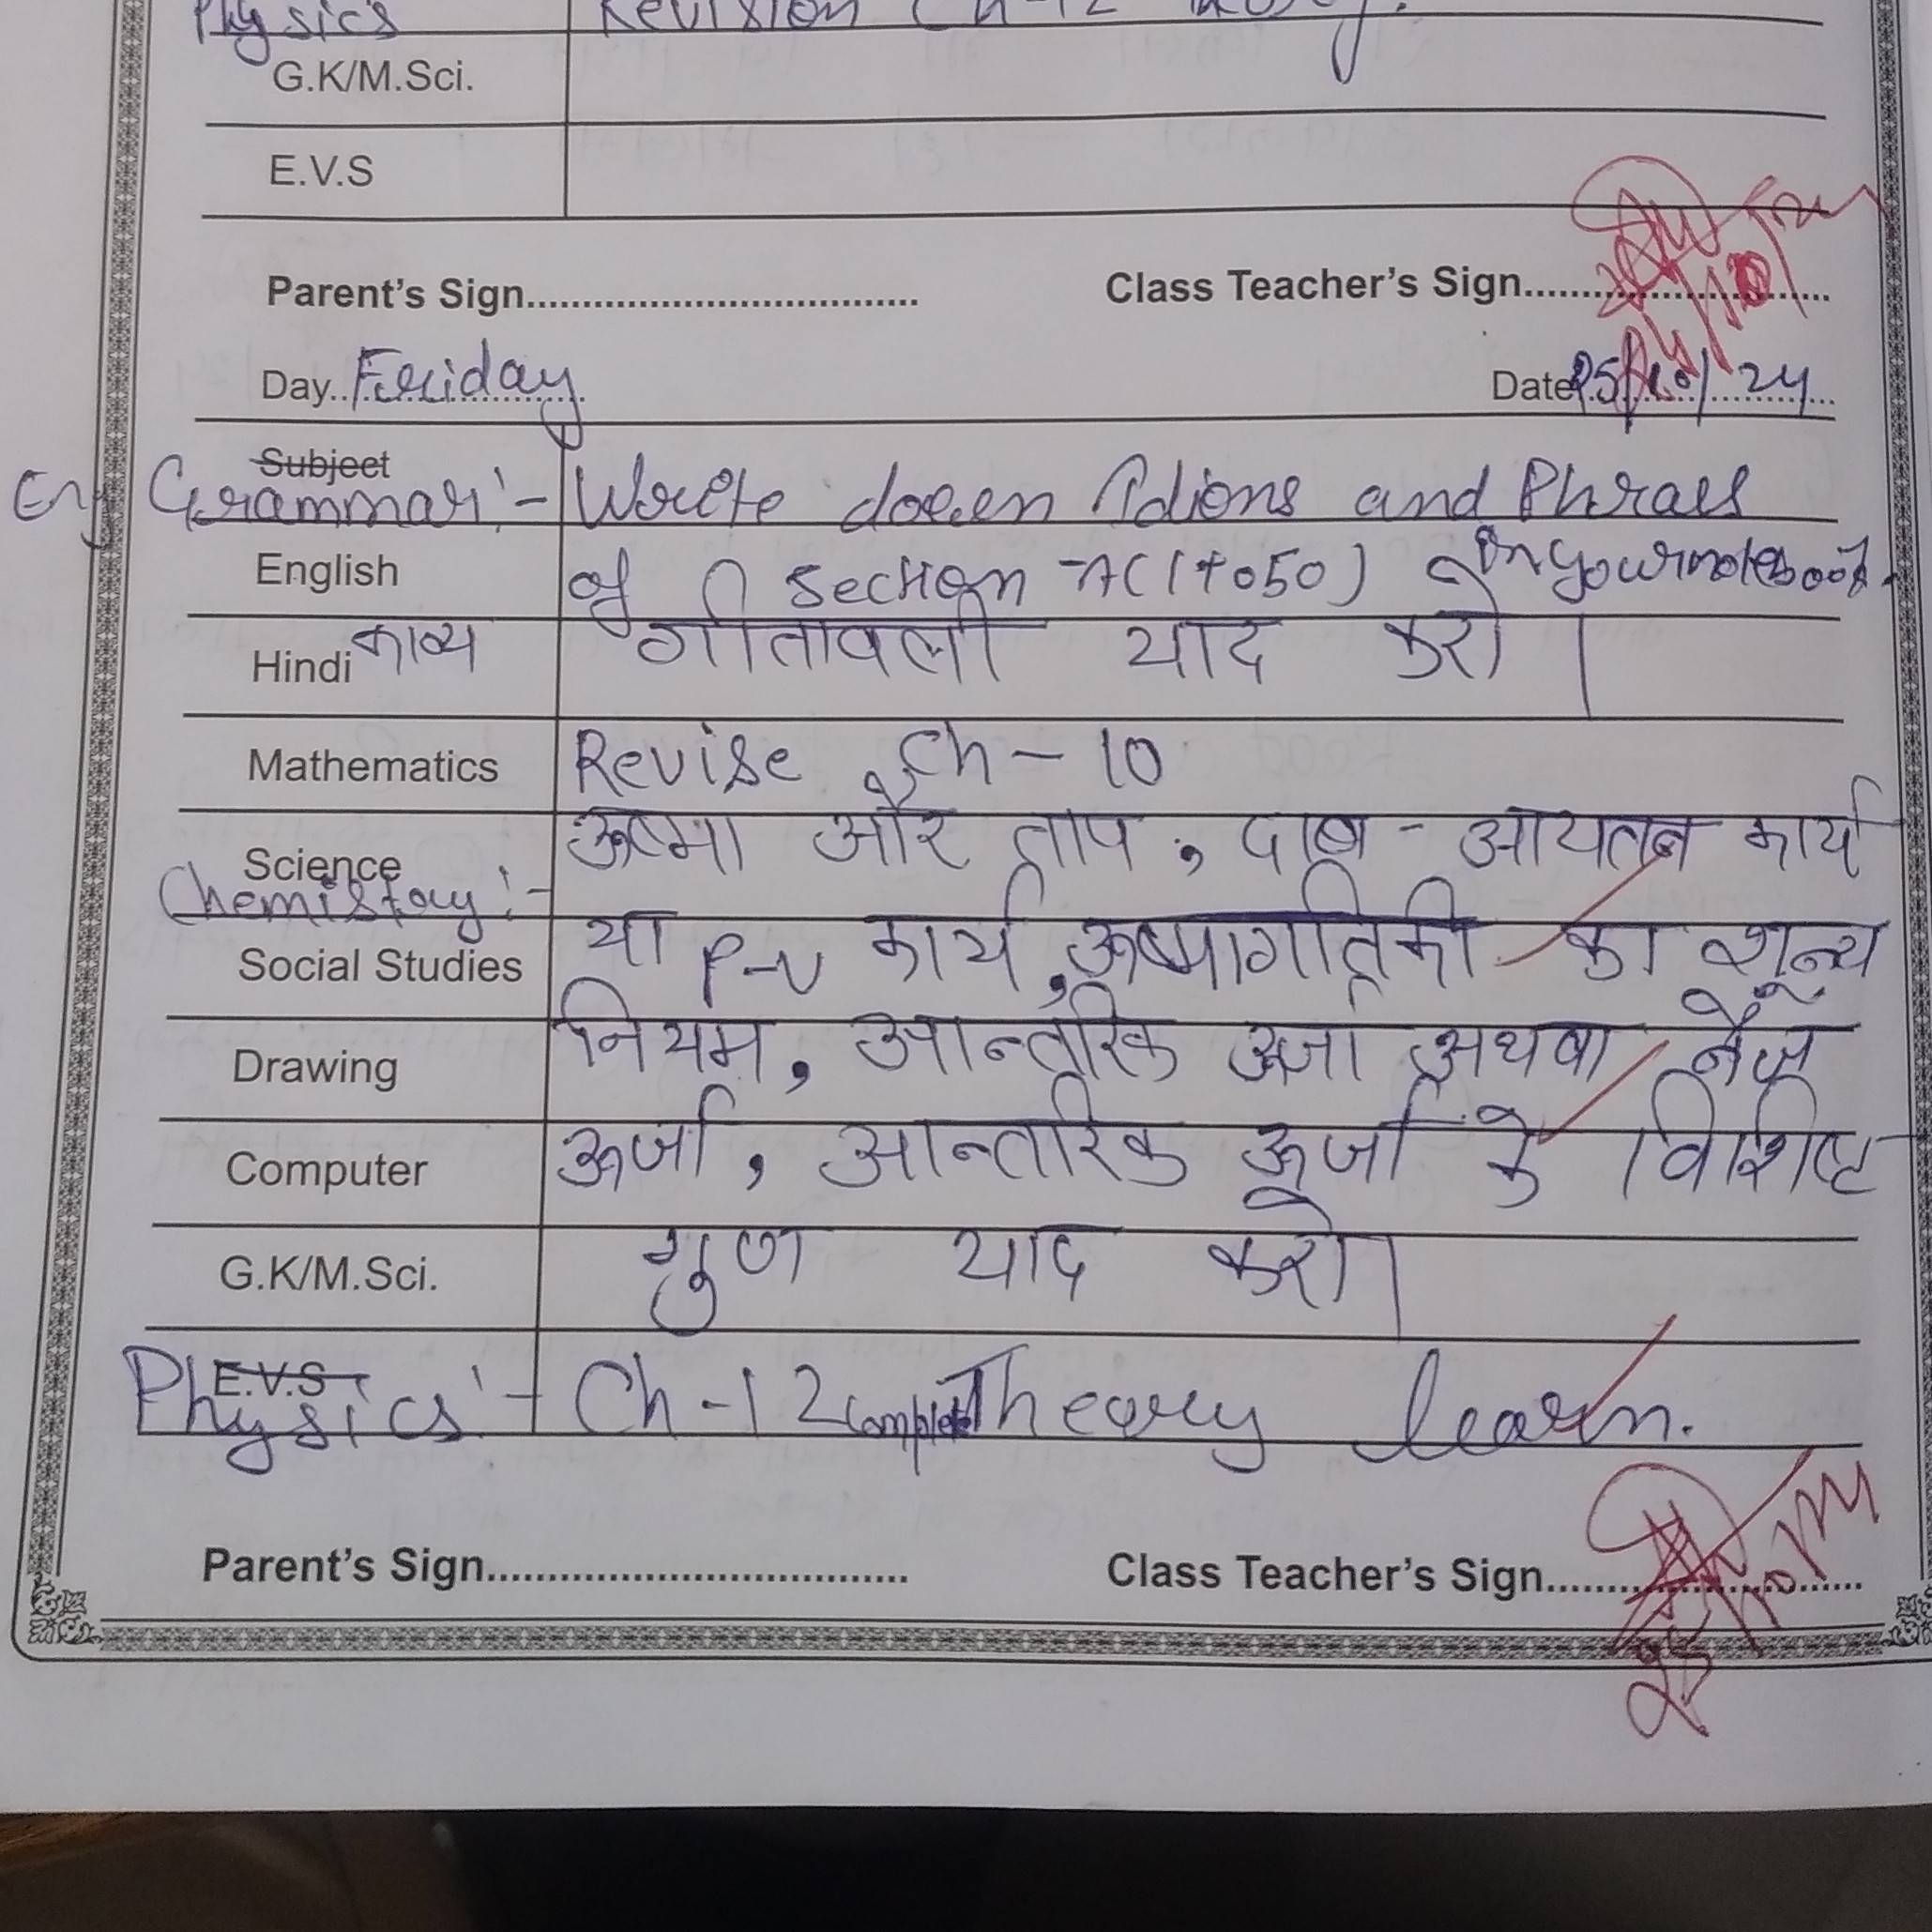 Physics Revision Ch-12
G.K/M.Sci.
E.V.S
Parent's Sign.................................. Class Teacher's Sign...........................
Day..Feriday Date 25/10/24
Subject
Eng Grammar :- Write down Idions and Phraes
English of Section -A (1 to 50) in your notebook.
Hindi काव्य गीतावली याद करो।
Mathematics Revise Ch - 10
Science ऊष्मा और ताप, दाब - आयतन कार्य
Chemistry :-
Social Studies या P-V कार्य, ऊष्मागतिकी का शून्य
Drawing नियम, आन्तरिक ऊर्जा अथवा नैज
Computer ऊर्जा, आन्तरिक ऊर्जा के विशिष्ट
G.K/M.Sci. गुण याद करो।
E.V.S
Physics :- Ch -12 complete Theory learn.
Parent's Sign.................................. Class Teacher's Sign...........................